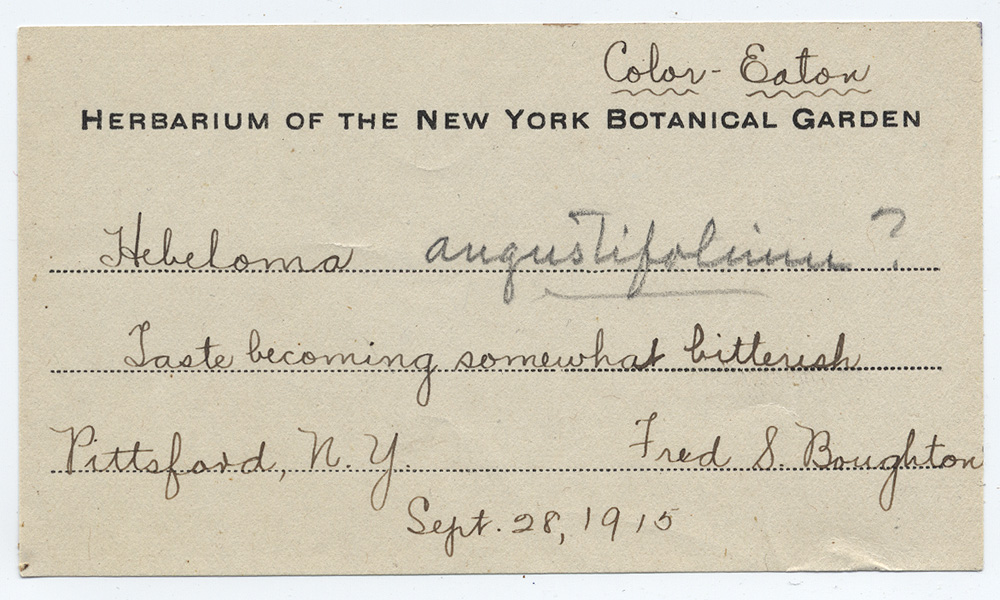 Color - Eaton
HERBARIUM OF THE NEW YORK BOTANICAL GARDEN
Hebeloma angustifolium ?
Taste becoming somewhat bitterish
Pittsford, N. Y. Fred S. Boughton
Sept. 28, 1915